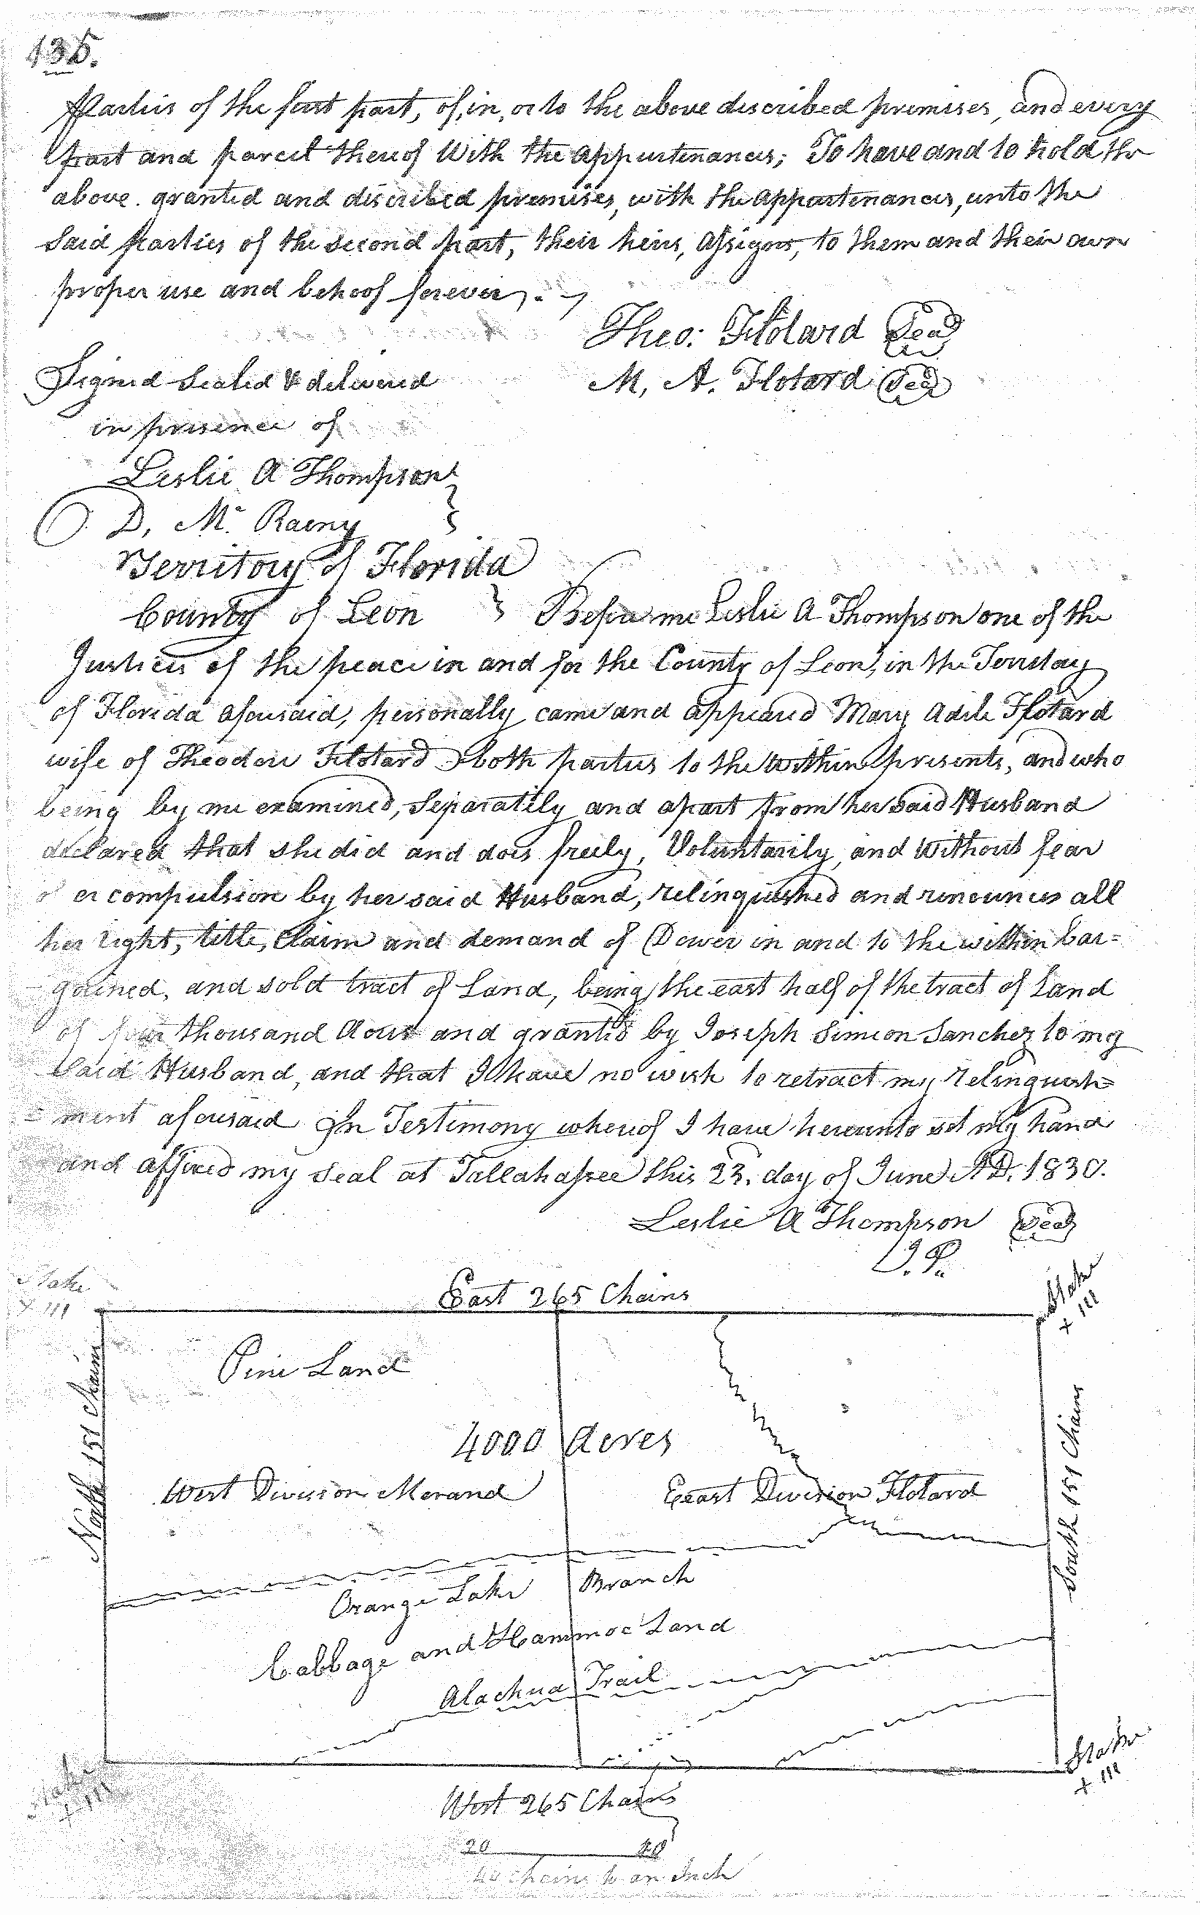 135.
Parties of the first part, of, in, or to the above described premises, and every
part and parcel thereof With the appurtenances; To have and to hold the
above granted and discribed premises, with the appurtenances, unto the
Said parties of the second part, their heirs, assigns, to them and their own
proper use and behoof forever.
Theo: Flotard Seal
M, A. Flotard Seal
Signed sealed & delivered
in presence of
Leslie A Thompson
D, Mc Raeny
Territory of Florida
County of Leon } Before me Leslie A Thompson one of the
Justices of the peace in and for the County of Leon, in the Territory
of Florida aforesaid, personally came and appeared Mary Adile Flotard
wife of Theodore Flotard both parties to the within presents, and who
being by me examined, Separately and apart from her said Husband
declared that she did and does freely, Voluntarily, and without fear
or compulsion by her said Husband, relinquished and renounces all
her right, title, Claim and demand of Dower in and to the within bar=
gained, and sold tract of Land, being the east half of the tract of Land
of four thousand Acres and granted by Joseph Simeon Sanchez to my
Said Husband, and that I have no wish to retract my relinquish=
=ment aforesaid In Testimony whereof I have hereunto set my hand
and affixed my seal at Tallahassee this 23. day of June A.D. 1830.
Leslie A Thompson Seal
J. P.
Stake
+ 111
East 265 Chains
Stake
+ 111
Pine Land
North 151 Chains
4000 Acres
West Division Morand
East Division Flotard
South 151 Chains
Orange Lake Branch
Cabbage and Hammoc Land
Alachua Trail
Stake
+ 111
Stake
+ 111
West 265 Chains
20 20
40 chains to an Inch